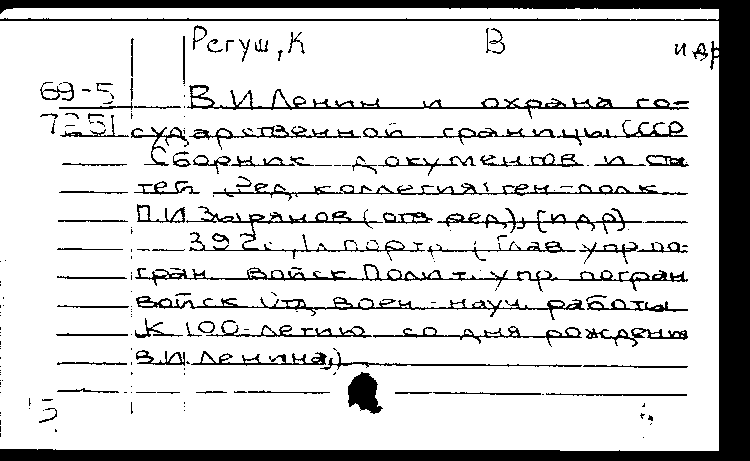 Регуш, К В и др
69-5 В.И. Ленин и охрана го-
7251 сударственной границы СССР
Сборник документов и ста
тей. Ред. коллегия: ген-полк.
П.И. Зырянов (отв ред), [и др]
392с., 1л портр. (Глав упр. по-
гран войск Полит. упр. погран
войск Отд. воен.-науч. работы
К 100-летию со дня рождения
В.И. Ленина)
15